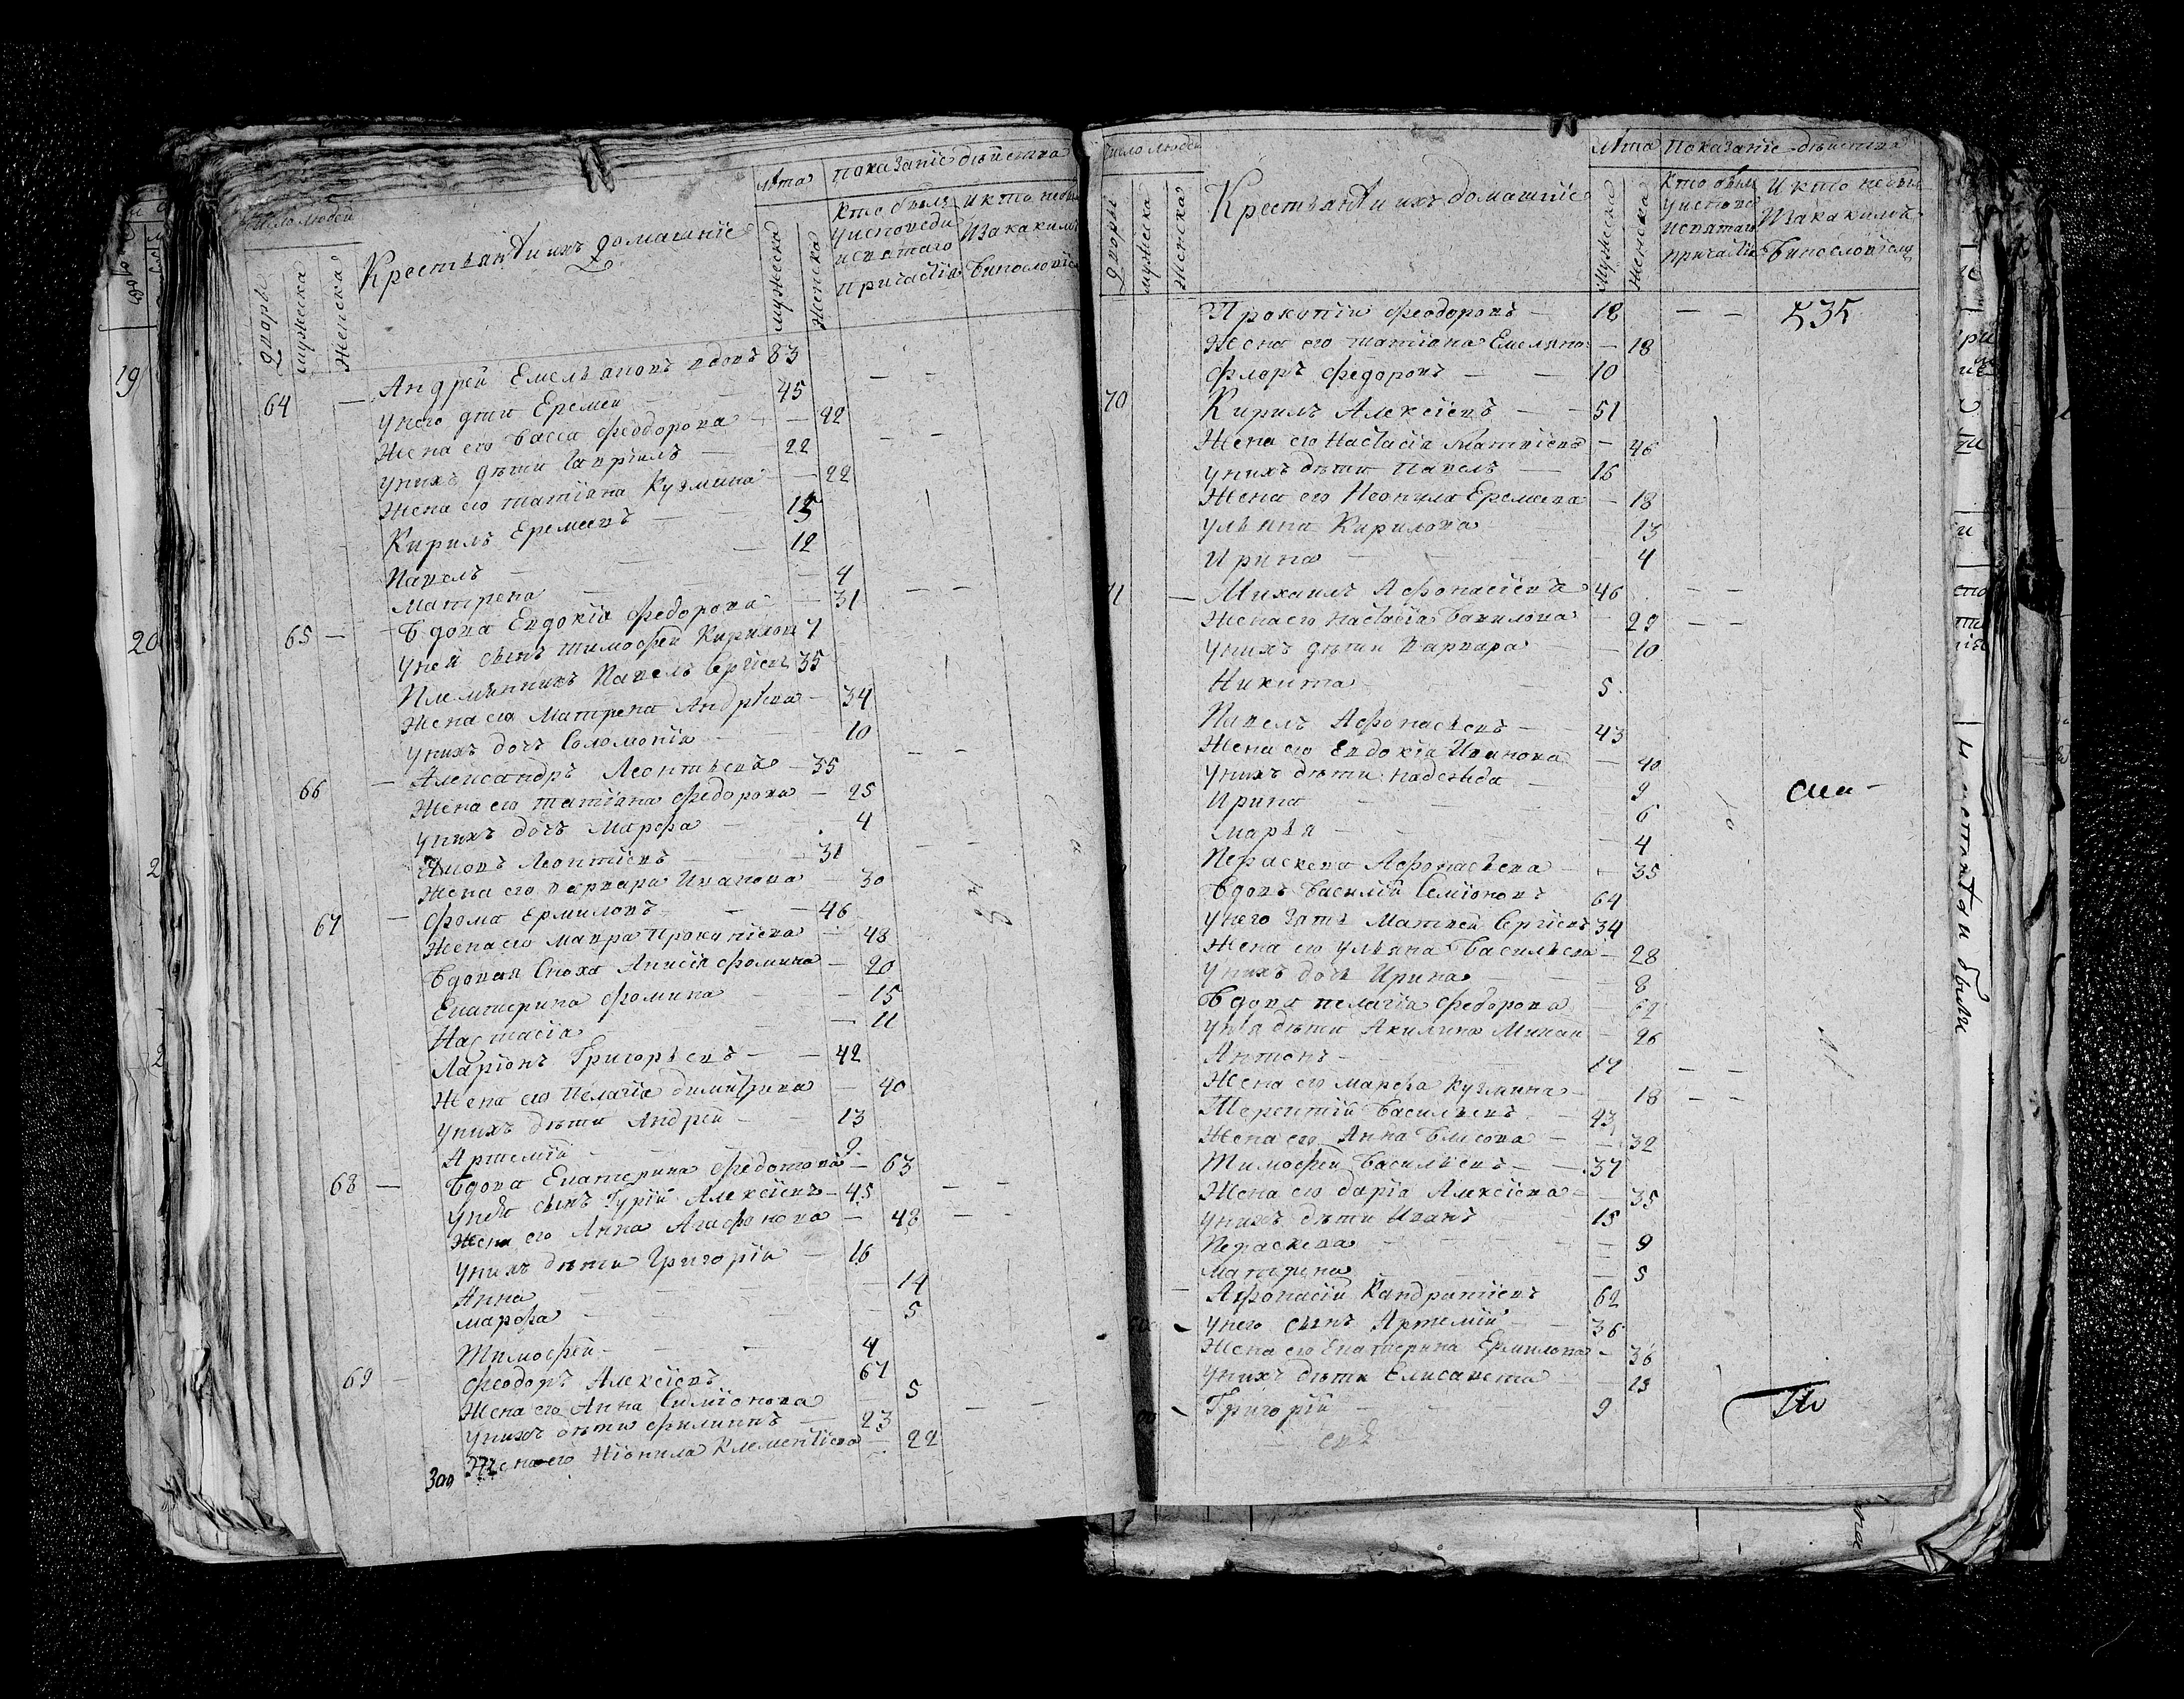 Число людей
Дворы
мужеска
Женска
Крестьянѣ и ихъ домашніе
лѣта
мужеска
женска
показаніе дѣйства
кто былъ у исповеди и святаго причастія
и кто не былъ и за какимъ винословіемъ
64 — Андрей Емельяновъ вдовъ 83
У него дѣти Еремей — 45 — —
Жена его Васса Феодорова — — 42
У нихъ дѣти Гавріилъ — 22 — —
Жена его татіана Кузмина — — 22
Кирилъ Еремеевъ — 15
Павелъ — 12
Матрена — 4
65 — Вдова Евдокія Федорова — 31 — —
У ней сынъ тимофей Кириловъ 7
Племянникъ Павелъ Сергіевъ 35
Жена его Матрена Андрѣева — 34
У нихъ дочь Соломонія — 10
66 — Александръ Леонтьевъ — 35 — —
Жена его татіана Федорова — 25
У нихъ дочь Марфа — 4
Леонтіевъ — 31 — —
Жена его варвара Иванова — 30
67 — Фома Ермиловъ — 46
Жена его мавра Прокопіева — 48
Вдовая Сноха Анисія Фомина — 20
Екатерина Фомина — 15
Настасія — 11
Ларіонъ Григорьевъ — 42
Жена его Пелагіа димитріва — 40
У нихъ дѣти Андрей — 13
Артемій — 9
68 — Вдова Екатерина Федотова — 63
У нея сынъ Гурій Алексіевъ — 45 — —
Жена его Анна Агафонова — 48 — —
У нихъ дѣти Григорій — 16
Анна — 14
марфа — 5
Тимофей — 4
69 — Феодоръ Алексіевъ 67
Жена его Анна Симіонова 5
У нихъ дѣти филиппъ — 23 — —
Жена его Ніонила Клементіева — 22
300
Число людей
Дворы
мужеска
Женска
Крестьянѣ и ихъ домашніе
лѣта
Мужеска
Женска
Показаніе дѣйства
Кто былъ у исповѣ и святаго причастія
И кто не былъ И за какимъ Винословіемъ
535
Прокопій Феодоровъ — 18 — —
Жена его татіана Емелья — 18
Флоръ Федоровъ — 10
70 Кирилъ Алексіевъ — 51
Жена его Настасія Матвіева — 46
У нихъ дѣти Павелъ — 16
Жена его Неонила Еремеева — 18
Ульяна Кирилова 13
Ирина — 4
71 — Михаилъ Афонасіевъ 46 — —
Жена его Настасія Вавилова — 29 — —
У нихъ дѣти варвара — 10
Никита — 5
Павелъ Афонасьевъ — 43
Жена его Евдокія Иванова — 40
У нихъ дѣти надежда — 9
Ирина — 6
Марья — 4
Пераскева Афонасьева — 35
Вдовъ Василій Семіоновъ 64
У него зять Матвей Сергіевъ 34
Жена его Ульяна Васильева — 28
У нихъ дочь Ирина — 8
Вдова пелагіа Федорова — 62
У нея дѣти Акилина — 26
Антонъ — 17 — —
Жена его марфа Кузмина — 18 — —
Терентій Васильевъ — 43
Жена его Анна Власова — 32
Тимофей Васильевъ — 37
Жена его дарія Алексіева — 35
У нихъ дѣти Иванъ 15
Пераскева — 9
матрена — 5
— Афонасій Кандратіевъ 62
У него сынъ Артемій — 36
Жена его Екатерина Ермилова — 36
У нихъ дѣти Елисавета 13
Григорій — 9